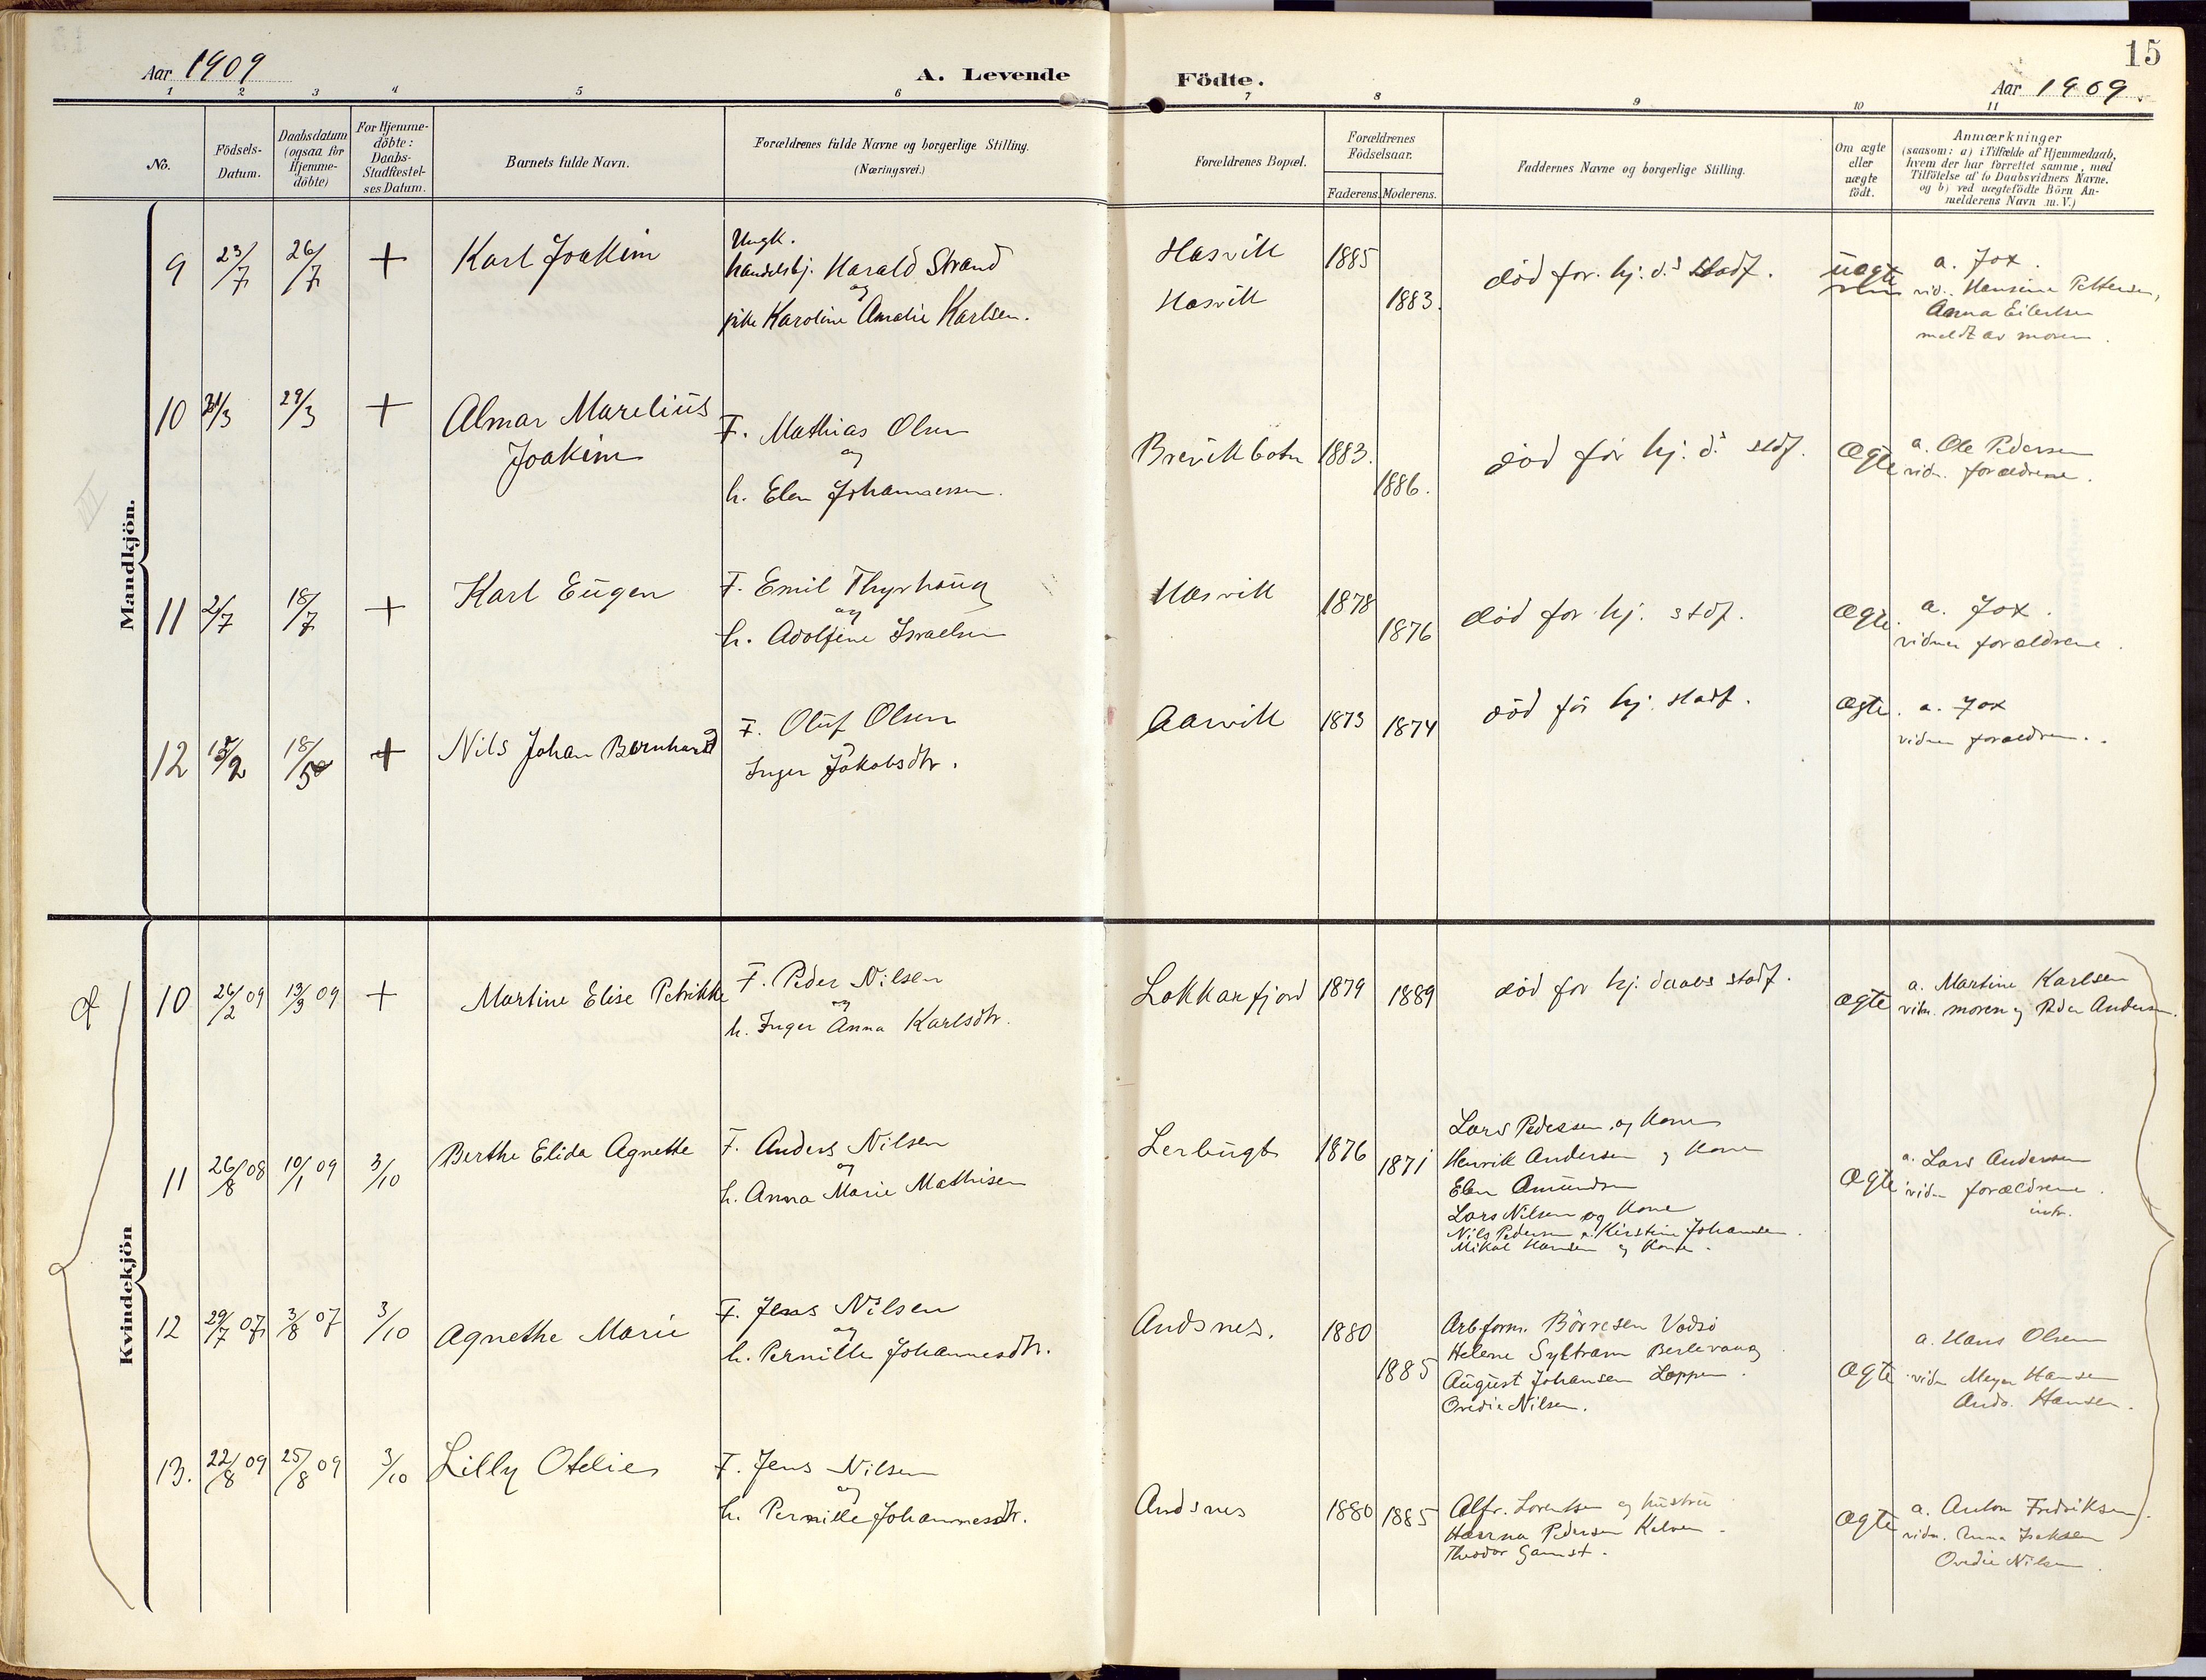 Aar 1909
A. Levende Födte.
15
Aar 1909.
1 2 3 4 5 6 7 8 9 10 11
No.
Födsels-Datum.
Daabsdatum (ogsaa for Hjemme-döbte)
For Hjemme-döbte: Daabs-Stadfæstel-ses Datum.
Barnets fulde Navn.
Forældrenes fulde Navne og borgerlige Stilling.
(Næringsvei.)
Forældrenes Bopæl.
Forældrenes Födselsaar.
Faderens. Moderens.
Faddernes Navne og borgerlige Stilling.
Om ægte eller uægte födt.
Anmærkninger
(saasom: a) i Tilfælde af Hjemmedaab,
hvem der har forrettet samme, med
Tilföielse af to Daabsvidners Navne.
og b) ved uægtefödte Börn An-
melderens Navn m. V.)
Mandkjön.
9 23/7 26/7 + Karl Joakim
Ungk.
handelsbj. Harald Strand
og
pike Karoline Amalie Karlsen.
Hasvik 1885
Hasvik 1883.
död for. hj. d.s stadf.
uægte
a. Fox.
vid. Hansine Pettersen,
Anna Eilertsen
meldt av moren.
10 /3 29/3 + Almar Marelius
Joakim
F. Mathias Olsen
og
h. Elen Johannessen.
Brevikbotn 1883.
1886.
död för hj. d.s stdf.
Ægte
a. Ole Pedersen
vidn. forældrene.
11 2/7 18/7 + Karl Eugen
F. Emil Thyrhaug
og
h. Adolfine Israelsen
Hasvik 1878
1876
död for hj. stdf.
Ægte.
a. Fox.
vidner forældrene.
12 /2 18/5 + Nils Johan Bernhard
F. Oluf Olsen
Inger Jakobsdtr.
Aarvik 1873 1874
död för hj. stadf.
Ægte.
a. Fox
vidner forældrene.
Kvindekjön
10 26/2 09 13/3 09 + Martine Elise Petrikke
F. Peder Nilsen
og
h. Inger Anna Karlsdtr.
Lokkarfjord 1879 1889
död for hj. daabs stadf.
ægte
a. Martine Karlsen
vidn. moren og Peder Andersen.
11 26/8 08 10/1 09 3/10 Berthe Elida Agnethe
F. Anders Nilsen
og
h. Anna Marie Mathisen
Lerbugt 1876 1871
Lars Pedersen og Kone
Henrik Andersen og Kone
Elen Amundsen
Lars Nilsen og Kone
Nils Pedersen Kirstine Johansen.
Mikal Hansen og Kone.
Ægte
a. Lars Andersen
vidn forældrene.
12 29/7 07 3/8 07 3/10 Agnethe Marie
F. Jens Nilsen
og
h. Pernille Johannesdtr.
Andsnes. 1880
1885
Arb.form. Börresen Vadsö
Helene Syltram Berlevaag
August Johansen Loppen.
Ovedie Nilsen.
Ægte
a. Hans Olsen
vidn Meyer Hansen
Ands. Hansen.
13. 22/8 09 25/8 09 3/10 Lilly Otelie
F. Jens Nilsen
og
h. Pernille Johannesdtr.
Andsnes 1880 1885
Alfr. Lorentsen og hustru
Hanna Pedersen Kalven.
Theodor Gamst.
Ægte
a. Anton Fredriksen.
vidn. Anna Isaksen
Ovedie Nilsen.